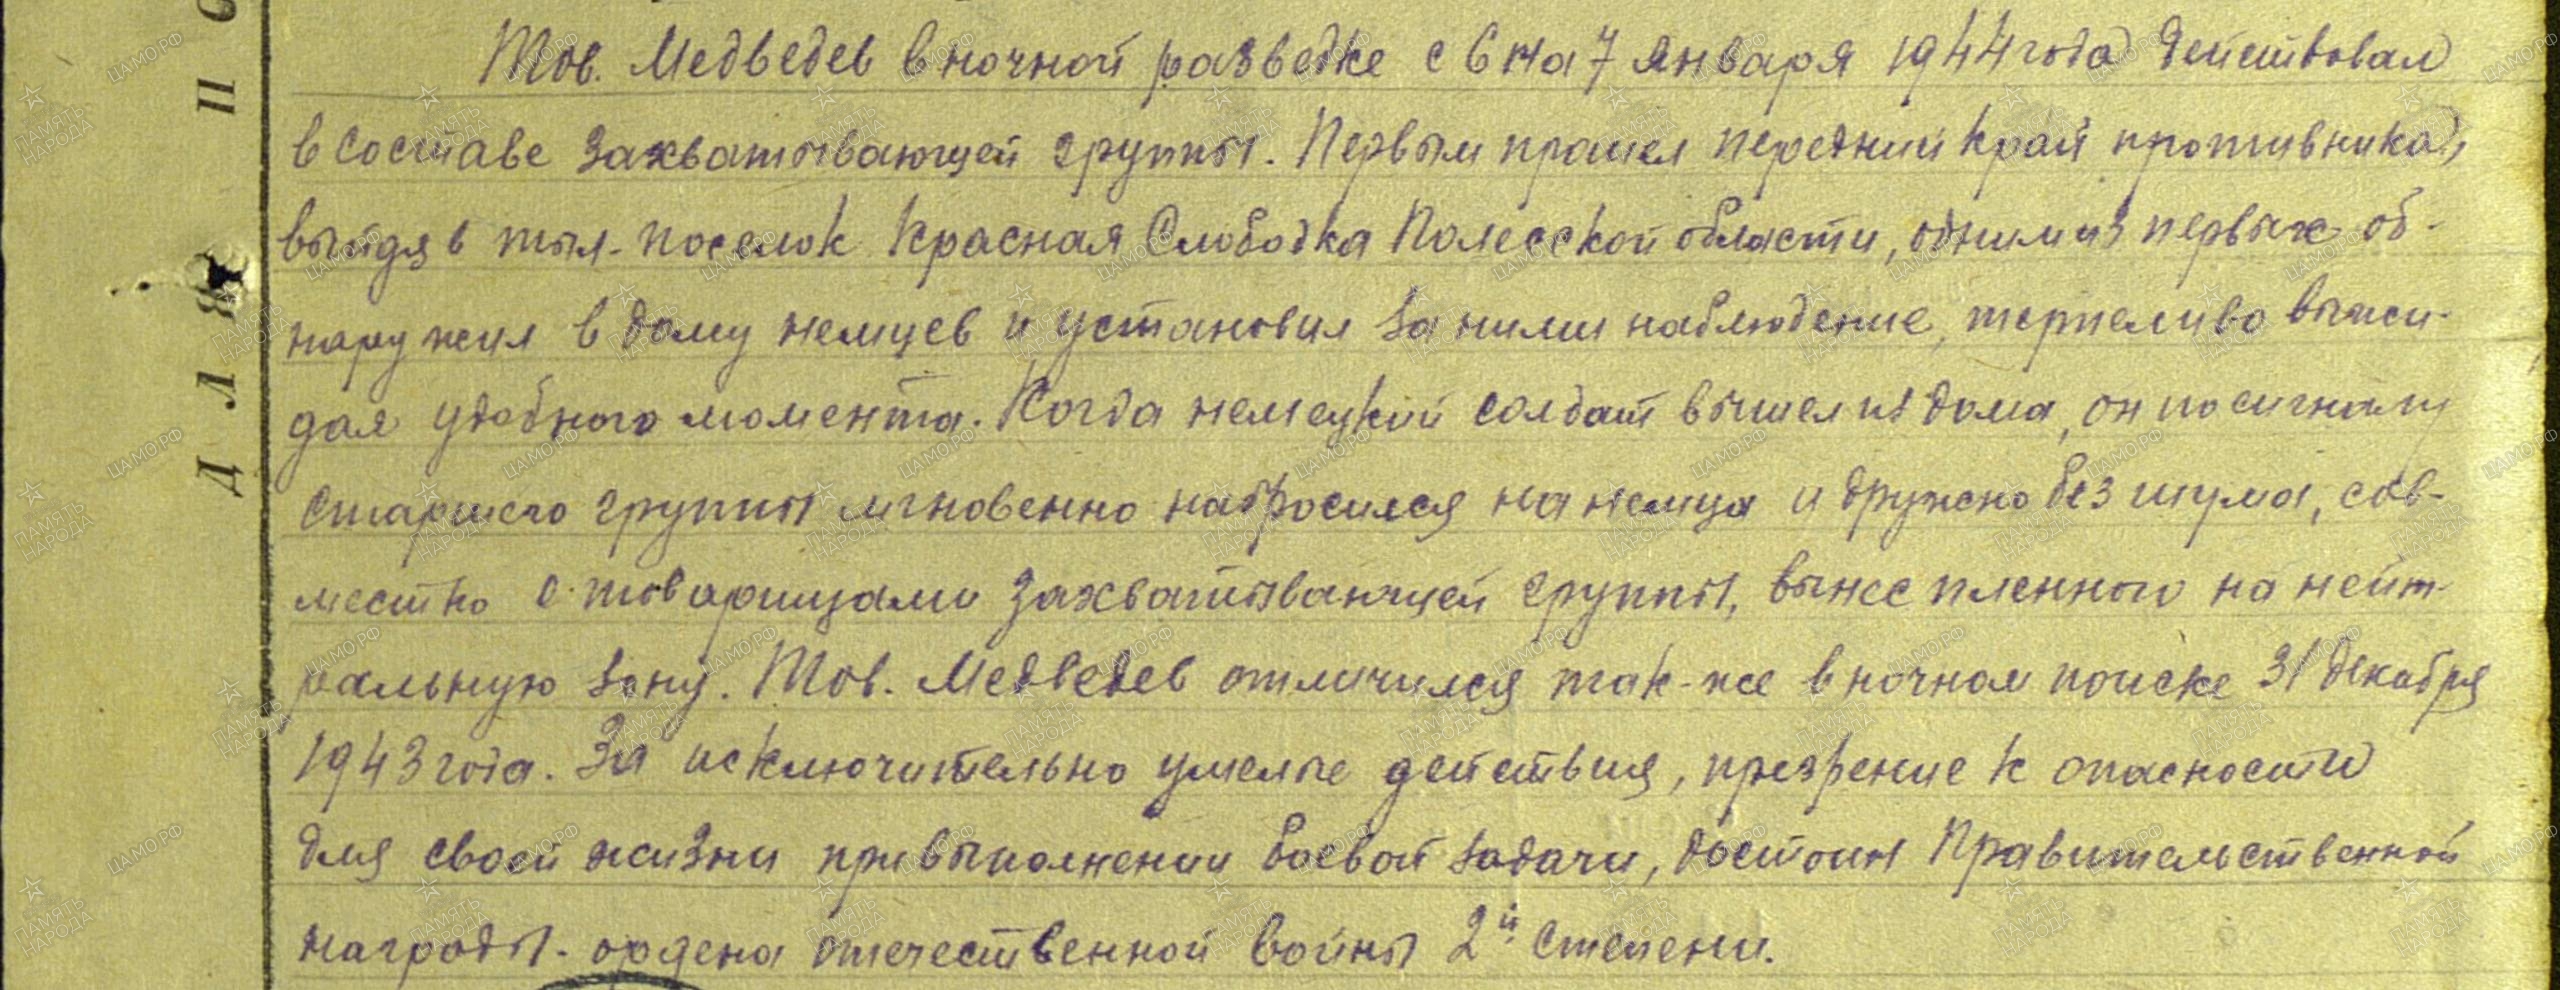 Тов. Медведев в ночной разведке с 6 на 7 января 1944 года действовал
в составе захватывающей группы. Первым прошел передний край противника,
выйдя в тыл - поселок Красная Слободка Полесской области, одним из первых об-
наружил в дому немцев и установил за ними наблюдение, терпеливо выжи-
дая удобного момента. Когда немецкий солдат вышел из дома, он по сигналу
старшего группы мгновенно набросился на немца и дружно без шума, сов-
местно с товарищами захватывающей группы, вынес пленного на нейт-
ральную зону. Тов. Медведев отличился так-же в ночном поиске 31 декабря
1943 года. За исключительно умелые действия, презрение к опасности
для своей жизни при выполнении боевой задачи, достоин Правительственной
награды - ордена отечественной войны 2й степени.
Д Л Я П О
ПАМЯТЬ НАРОДА
ЦАМО.РФ